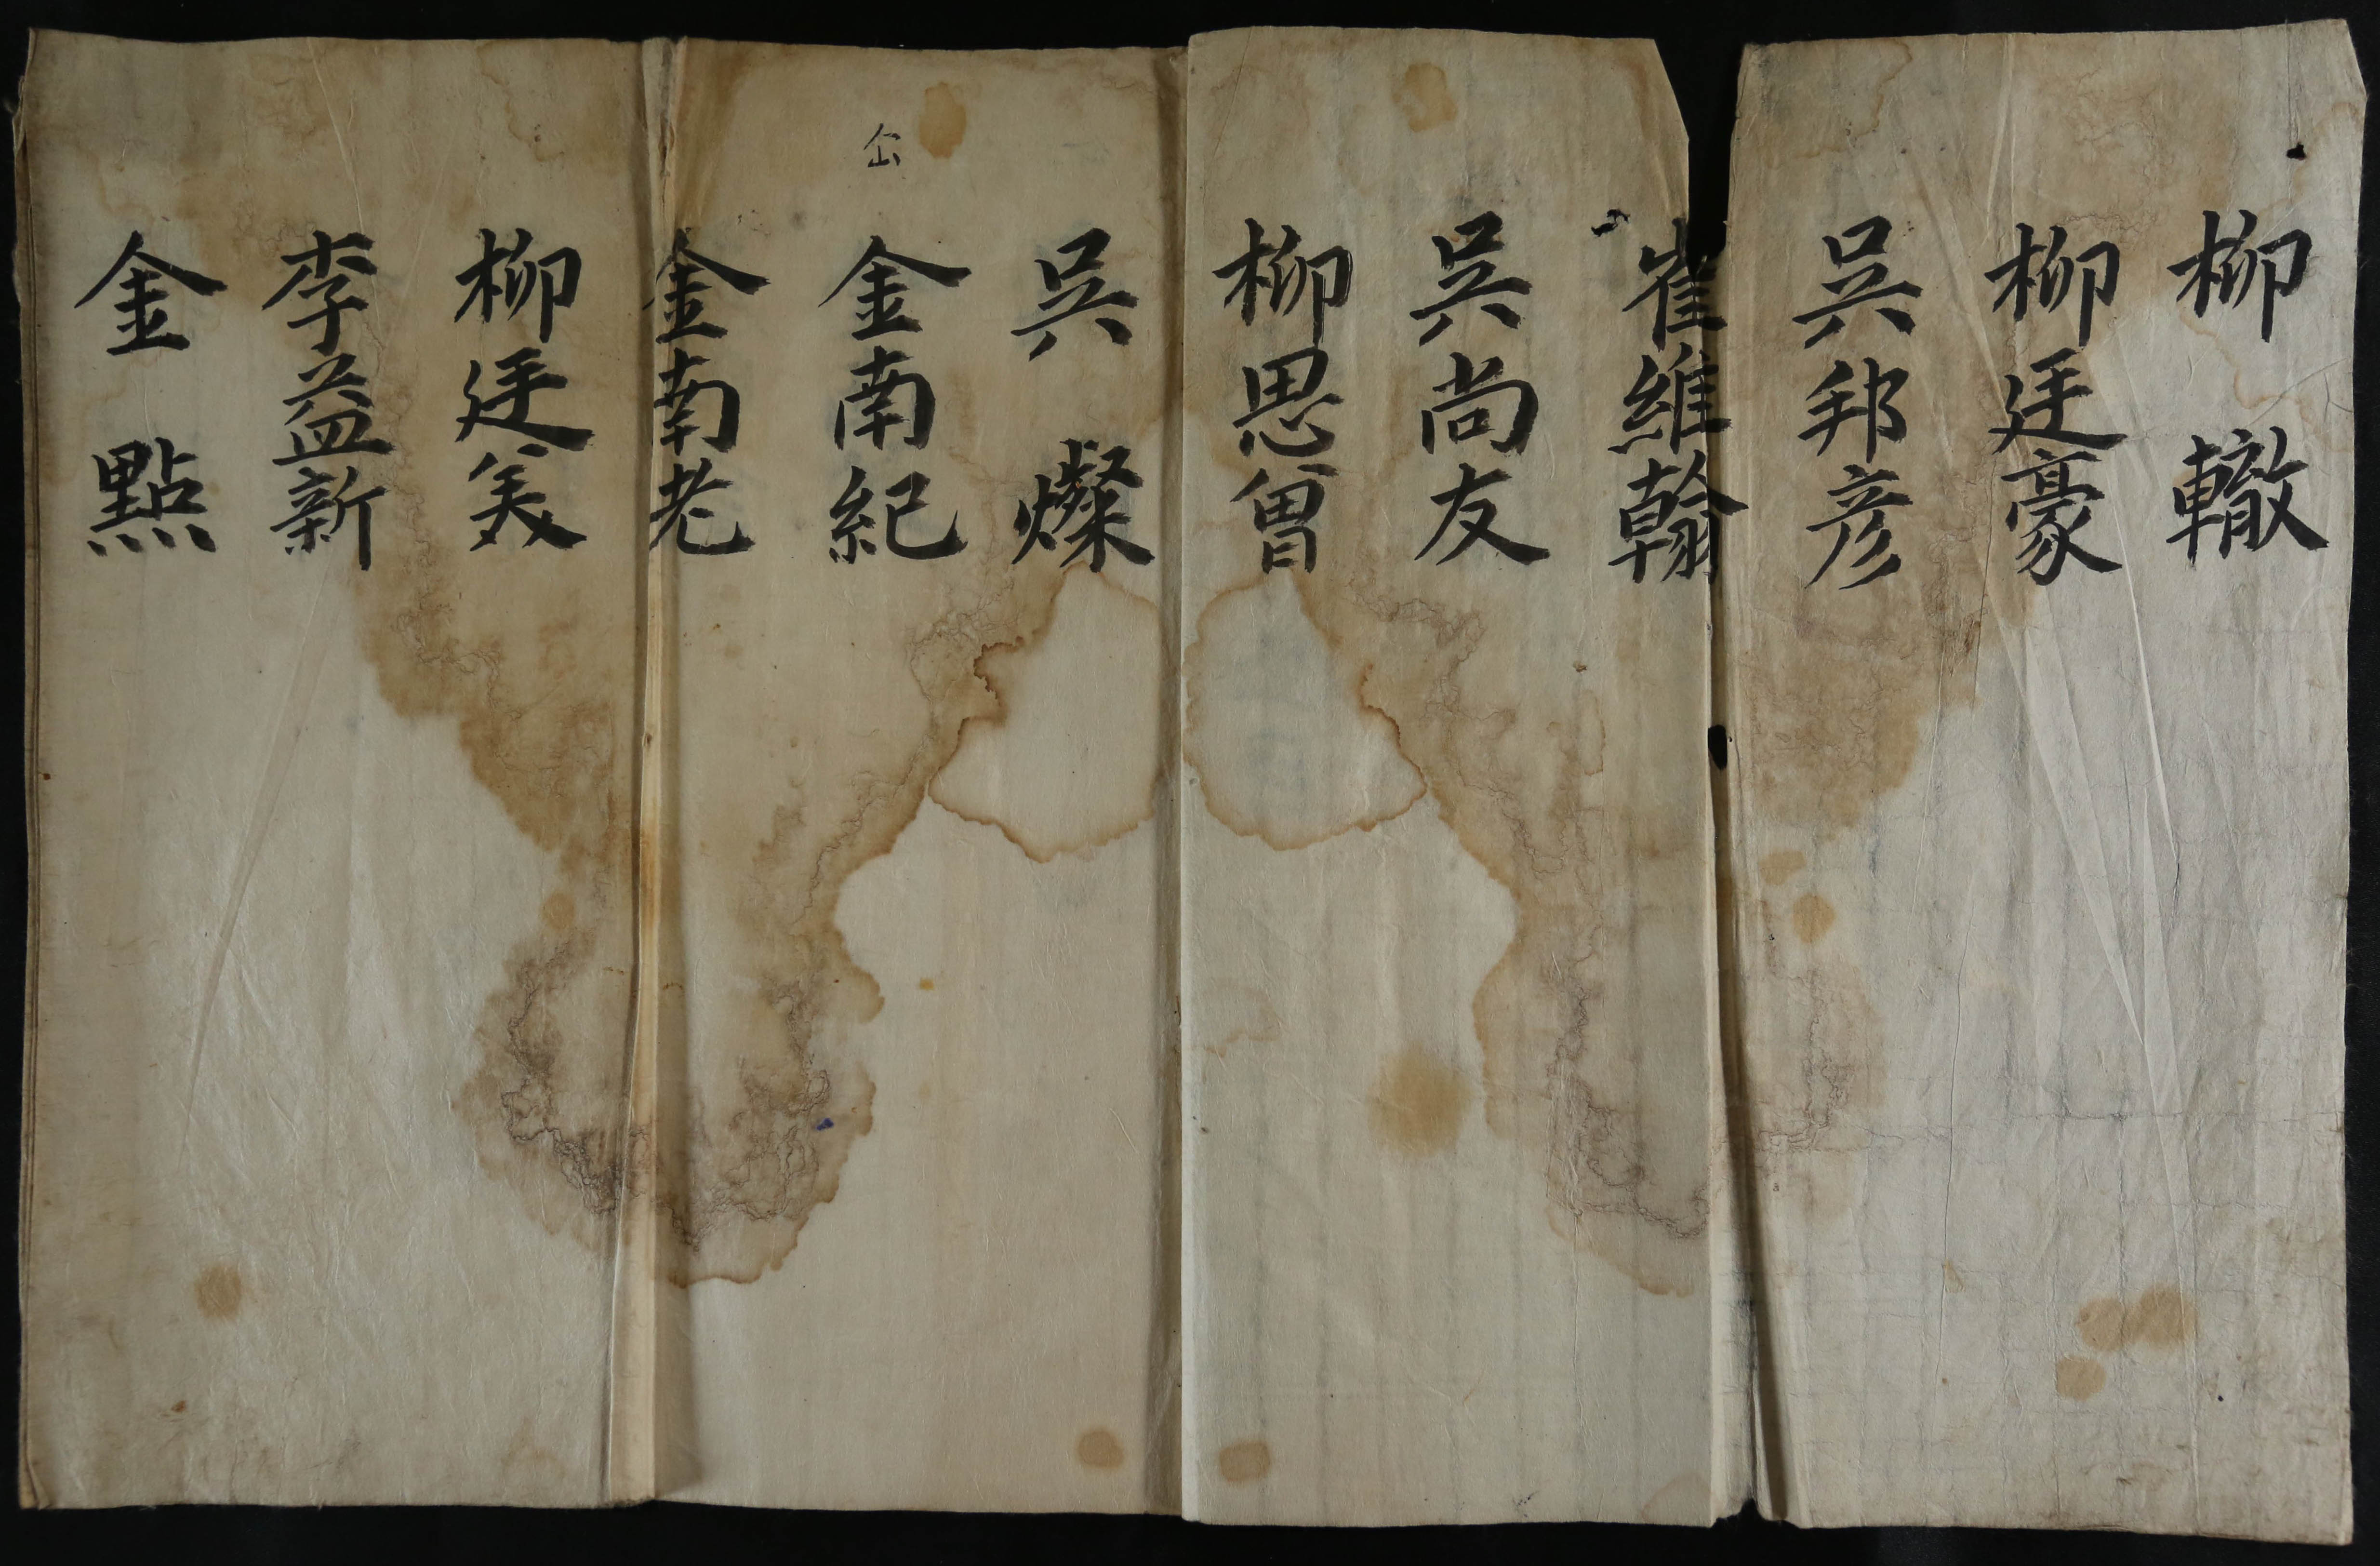 柳轍
柳廷豪
吳邦彦
崔維翰
吳尚友
柳思曾
吳燦
金南紀
金南老
柳廷美
李益新
金點